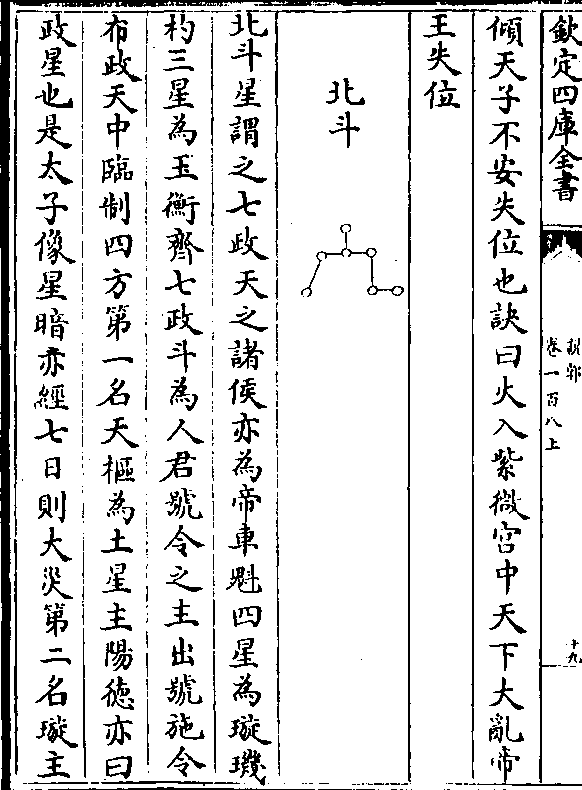 欽定四庫全書
說郛
卷一百八上
十九
傾天子不安失位也訣曰火入紫微宫中天下大亂帝
王失位
北斗
北斗星謂之七政天之諸侯亦為帝車魁四星為璇璣
杓三星為玉衡齊七政斗為人君號令之主出號施令
布政天中臨制四方第一名天樞為土星主陽德亦曰
政星也是太子像星暗亦經七日則大災第二名璇主